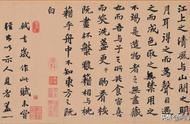 江上之清風與山間之明
月耳得之而為聲目遇之
而成色取之無禁用之
不竭是造物者之無盡藏
也而吾與子之所共食客喜
而笑洗盞更酌肴核
既盡杯盤狼藉相與枕
藉乎舟中不知東方之既
白
軾去歲作此賦未嘗
輕出以示人見者蓋一